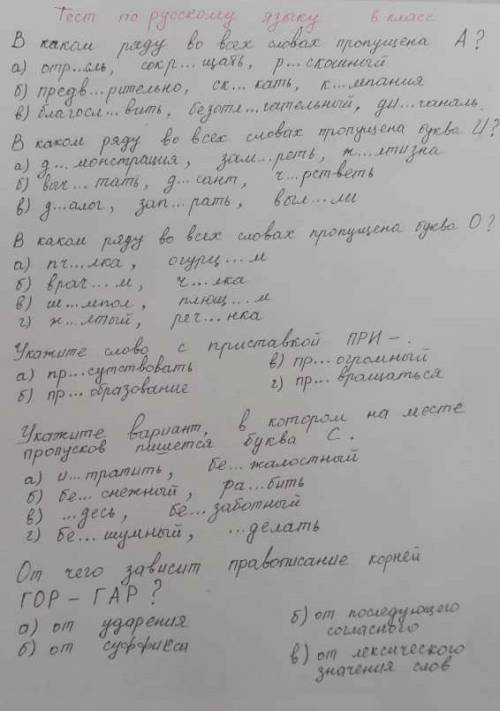 Тест по русскому языку 6 класс
В каком ряду во всех словах пропущена А?
а) отр...сль, сокр...щать, р...скошный
б) предв...рительно, ск...кать, к...мпания
в) благосл...вить, безотл...гательный, ди...гональ.
В каком ряду во всех словах пропущена буква И?
а) д...монстрация, зам...реть, ж...лтизна
б) выч...тать, д...сант, ч...рстветь
в) д...алог, зап...рать, вым...ли
В каком ряду во всех словах пропущена буква О?
а) пч...лка, огурц...м
б) врач...м, ч...лка
в) ш...мпол, плющ...м
г) ж...лтый, реч...нка
Укажите слово с приставкой ПРИ-.
а) пр...сутствовать в) пр...огромный
б) пр...образование г) пр...вращаться
Укажите вариант, в котором на месте
пропусков пишется буква С.
а) и...тратить, бе...жалостный
б) бе...снежный, ра...бить
в) ...десь, бе...заботный
г) бе...шумный, ...делать
От чего зависит правописание корней
ГОР - ГАР?
а) от ударения
б) от суффикса
б) от последующего
согласного
в) от лексического
значения слов